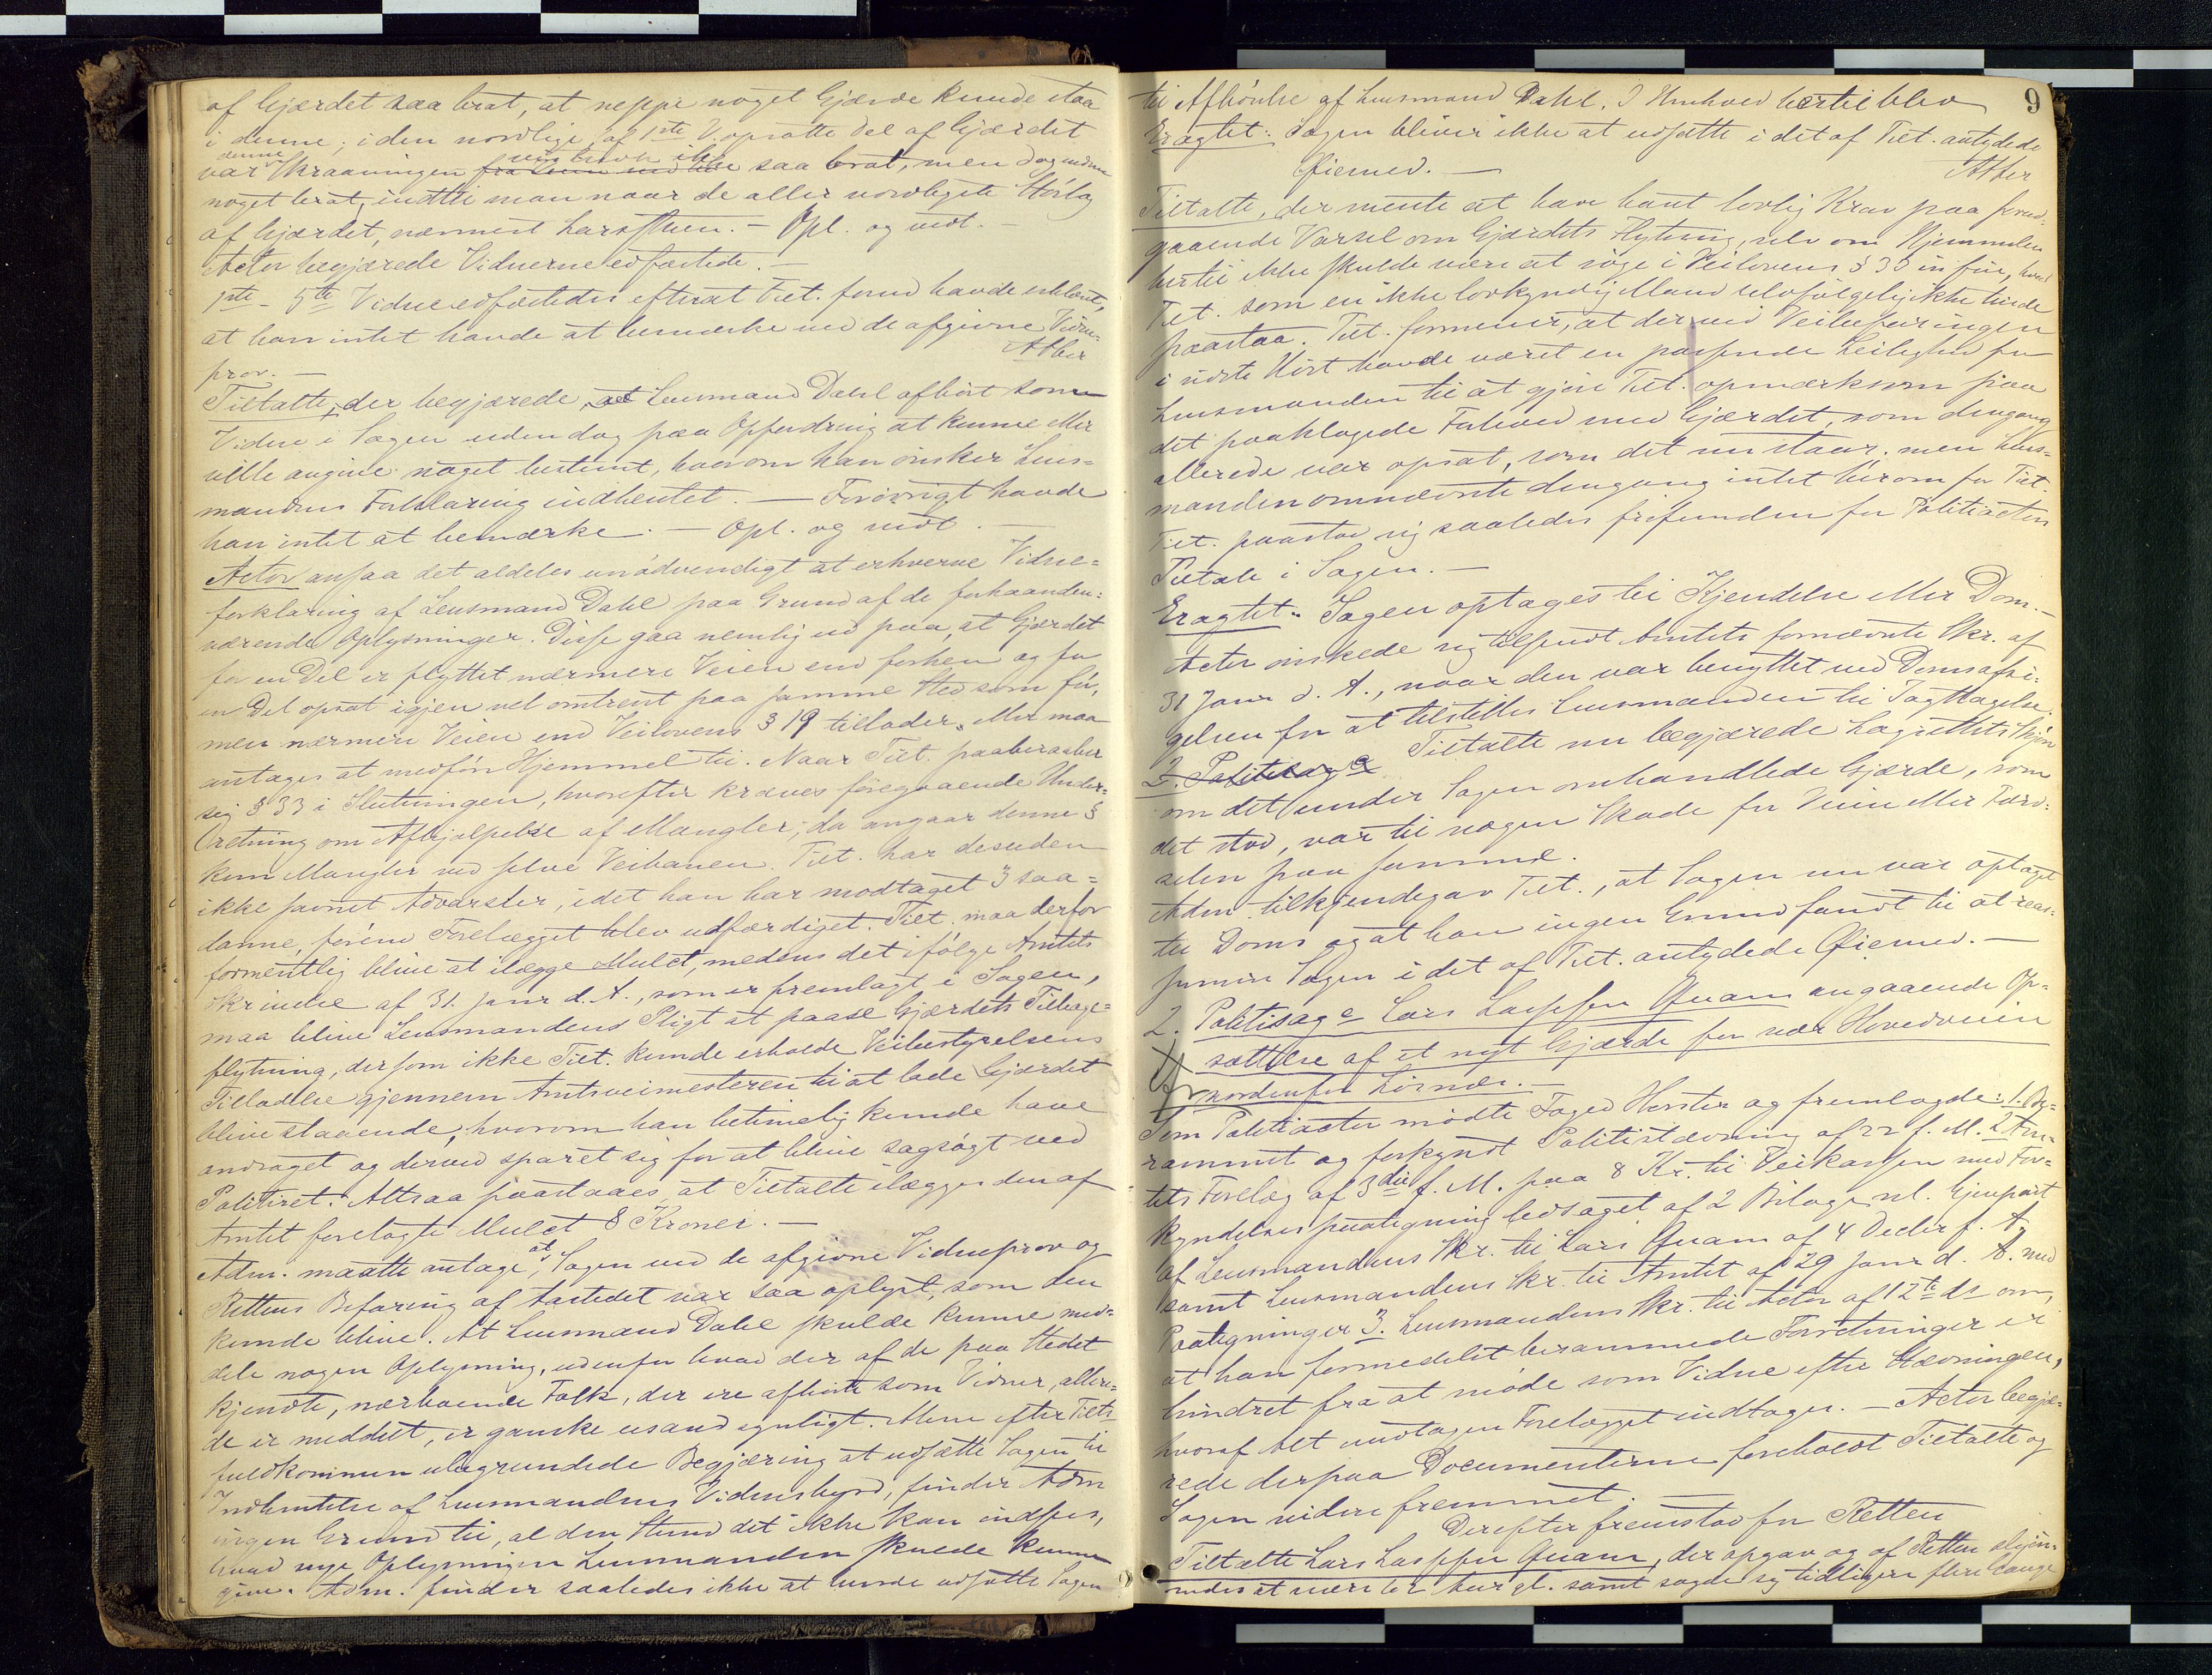 af Gjærdet saa brat, at neppe noget Gjærde kunde staa
i denne; i den nordlige, af 1ste V. opsatte Del af Gjærdet
var denne Skraaningen saa brat, men dog endnu
noget brat, indtil man naar de aller nordligste
af Gjærdet, nærmest . – Opl. og vedt. –
Actor begjærede Vidnerne edfæstede. –
1ste – 5te Vidne edfæstedes efterat Tilt. forud havde erklæret,
at han intet havde at bemærke ved de afgivne Vidne-
prov. – Atter
Tiltalte, der begjærede Lensmand Dahl afhørt som
Vidne i Sagen uden dog paa Opfordring at kunne eller
ville angive noget bestemt, hvorom han ønsker Lens-
mandens Forklaring indhentet. – Forøvrigt havde
han intet at bemærke. – Opl. og vedt. –
Actor ansaa det aldeles unødvendigt at erhverve Vidne-
forklaring af Lensmand Dahl paa Grund af de forhaanden-
værende Oplysninger. Disse gaa nemlig ud paa, at Gjærdet
for en Del er flyttet nærmere Veien end forhen og for
en Del opsat igjen vel omtrent paa samme Sted som før,
men nærmere Veien end Veilovens § 19 tillader. Eller maa
antages at medføre Hjemmel til. Naar Tilt. paaberaaber
sig § 33 i Slutningen, hvorefter kræves foregaaende Under-
retning om Afhjælpelse af Mangler, da angaar denne §
kun Mangler ved selve Veibanen. Tilt. har desuden
ikke savnet Advarsler, idet han har modtaget 3 saa-
danne, førend Forelægget blev udfærdiget. Tilt. maa derfor
formentlig blive at ilægge Mulct, medens det ifølge Amtets
Skrivelse af 31. Janr d. A., som er fremlagt i Sagen,
maa blive Lensmandens Pligt at paase Gjærdets Tilbage-
flytning, dersom ikke Tilt. kunde erholde Veibestyrelsens
Tilladelse gjennem Amtsveimesteren til at lade Gjærdet
blive staaende, hvorom han betimelig kunde have
andraget og derved sparet sig for at blive sagsøgt ved
Politiret. Altsaa paastaaes, at Tiltalte ilægges den af
Amtet forelagte Mulct 8 Kroner. –
Adm. maatte antage, at Sagen ved de afgivne Vidneprov og
Rettens Befaring af Aastedet var saa oplyst, som den
kunde blive. At Lensmand Dahl skulde kunne med-
dele nogen Oplysning, udenfor hvad der af de paa Stedet
kjendte, nærboende Folk, der ere afhørte som Vidner, aller-
de er meddelt, er ganske usandsynligt. Alene efter Tilts
fuldkommen ubegrundede Begjæring at udsætte Sagen til
Indhentelse af Lensmandens Vidnesbyrd, finder Adm
ingen Grund til, al den Stund det ikke kan indsees,
hvad nye Oplysninger Lensmanden skulde kunne
give. Adm. finder saaledes ikke at burde udsætte Sagen
9
til Afhørelse af Lensmand Dahl. I Henhold hertil blev
Eragtet: Sagen bliver ikke at udsætte i det af Tilt. antydede
Øiemed. – Atter
Tiltalte, der mente at have havt lovlig Krav paa forud-
gaaende Varsel om Gjærdets Flytning, selv om Hjemmelen
hertil ikke skulde være at søge i Veilovens § 33 in fine, hvad
Tilt. som en ikke lovkyndig Mand selvfølgelig ikke turde
paastaa. Tilt. formener, at der ved Veibefaringen
i sidste Høst havde været en passende Leilighed for
Lensmanden til at gjøre Tilt. opmærksom paa
det paaklagede Forhold med Gjærdet, som dengang
allerede var opsat, som det nu staar; men Lens-
manden omnævnte dengang intet herom for Tilt.
Tilt. paastod sig saaledes frifunden for Politiactors
Tiltale i Sagen. –
Eragtet: Sagen optages til Kjendelse eller Dom. –
Actor ønskede sig tilsendt Amtets fornævnte Skr. af
31 Janr d. A., naar den var benyttet ved Domsafsi-
gelsen for at tilstilles Lensmanden til Iagttagelse.
2. Politisag Tiltalte nu begjærede Lagrettets Skjøn
om det under Sagen omhandlede Gjærde, som
det stod, var til nogen Skade for Veien eller Færd-
selen paa samme.
Adm. tilkjendegav Tilt., at Sagen nu var optaget
til Doms og at han ingen Grund fandt til at reas-
sumere Sagen i det af Tilt. antydede Øiemed. –
2. Politisag c Lars Larssen Qvam angaaende Op-
sættelse af et nyt Gjærde for nær Hovedveien
nordenfor . –
Som Politiactor mødte Foged Horster og fremlagde: 1. Be-
rammet og forkyndt Politistævning af 22 f. M. 2 Am-
tets Forelæg af 3die f. M. paa 8 Kr. til Veikassen med For-
kyndelsespaategning ledsaget af 2 Bilage nl. Gjenpart
af Lensmandens Skr. til Lars Qvam af 4 Decbr f. A.
samt Lensmandens Skr. til Amtet af 29 Janr d. A. med
Paategninger 3. Lensmandens Skr. til Actor af 12te ds om,
at han formedelst berammede Forretninger er
hindret fra at møde som Vidne efter Stævningen,
hvoraf Alt undtagen Forelægget indtages. – Actor begjæ-
rede derpaa Documenterne foreholdt Tiltalte og
Sagen videre fremmet. –
Derefter fremstod for Retten
Tiltalte Lars Larssen Qvam, der opgav og af Retten skjøn-
nedes at være 62 Aar gl. samt sagde sig tidligere flere Gange